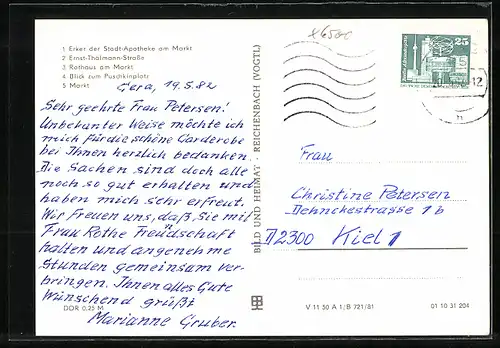 1 Erker der Stadt-Apotheke am Markt
2 Ernst-Thälmann-Straße
3 Rathaus am Markt
4 Blick zum Puschkinplatz
5 Markt
Gera, 19.5.82
Sehr geehrte Frau Petersen!
Unbekanter Weise möchte ich
mich für die schöne Garderobe
bei Ihnen herzlich bedanken.
Die Sachen sind doch alle
noch so gut erhalten und
haben mich sehr erfreut.
Wir freuen uns, daß Sie mit
Frau Rothe Freundschaft
halten und angenehme
Stunden gemeinsam ver-
bringen. Ihnen alles Gute
Wünschend grüßt
Marianne Gruber.
DDR 0,25 M
BILD UND HEIMAT · REICHENBACH (VOGTL)
25
Frau
Christine Petersen
Dehnckestrasse 1b
D2300 Kiel 1
V 11 50 A 1/B 721/81
01 10 31 204